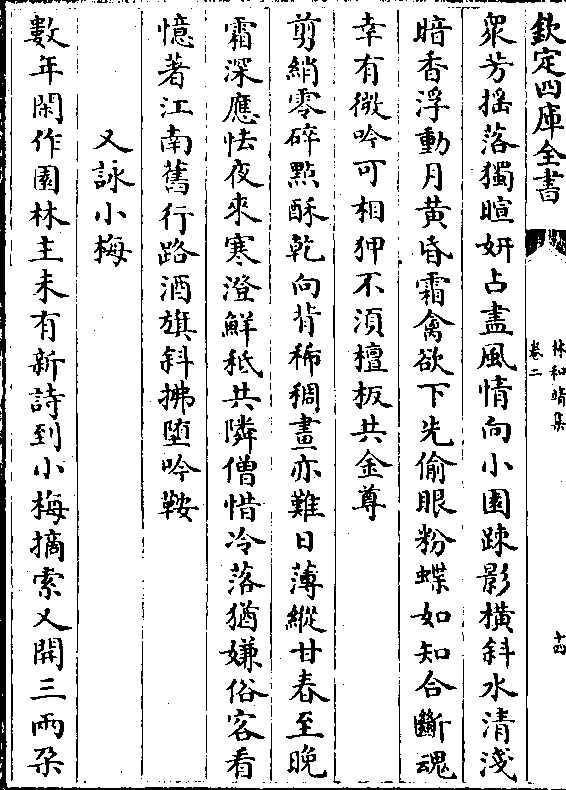 欽定四庫全書
林和靖集
卷二
十四
衆芳揺落獨暄妍占盡風情向小園踈影横斜水清淺
暗香浮動月黄昏霜禽欲下先偷眼粉蝶如知合斷魂
幸有微吟可相狎不湏檀板共金尊
剪綃零碎㸃酥乾向背稀稠畫亦難日薄縱甘春至晚
霜深應怯夜來寒澄鮮秪共隣僧惜冷落猶嫌俗客看
憶著江南舊行路酒旗斜拂墮吟鞍
又詠小梅
數年閑作園林主未有新詩到小梅摘索又開三兩朶